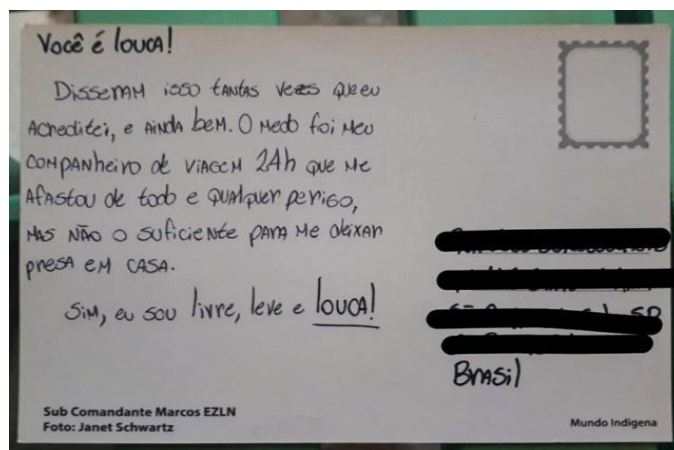 Você é louca!
Disseram isso tantas vezes que eu
acreditei, e ainda bem. O medo foi meu
companheiro de viagem 24h que me
afastou de todo e qualquer perigo,
mas não o suficiente para me deixar
presa em casa.
Sim, eu sou livre, leve e louca!
SP
Brasil
Sub Comandante Marcos EZLN
Foto: Janet Schwartz
Mundo Indigena